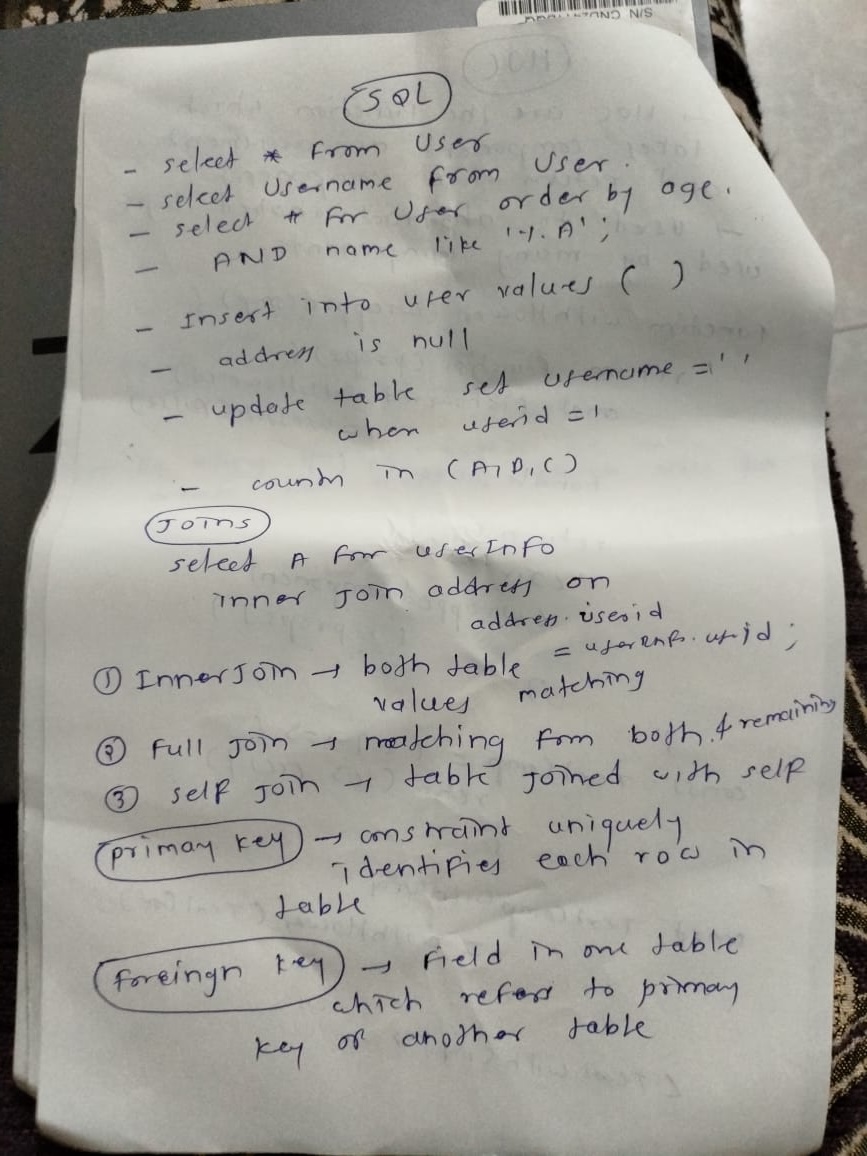 SQL
- select * From User
- select Username from User.
- select * For User order by age.
- AND name like '%A';
- Insert into user values ( )
- address is null
- update table set username =' '
when userid = 1
- in (A, B, C)
Joins
select A for userInfo
inner Join address on
address.userid
= userInfo.userid;
① Inner Join → both table
values matching
② Full Join → matching from both & remaining
③ self Join → table Joined with self
primary key → constraint uniquely
identifies each row in
table
foreingn key → Field in one table
which refers to primary
key of another table
S/N